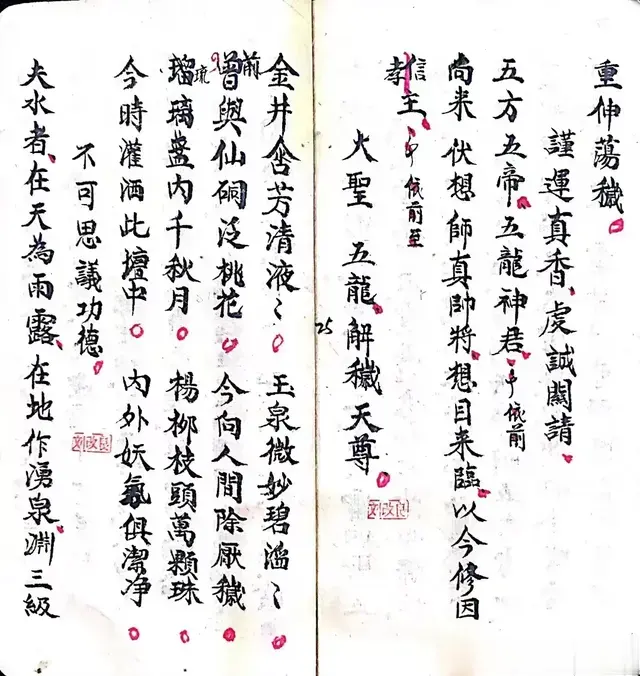 重伸蕩穢
謹運真香虔誠關請
五方五帝五龍神君 依前
尚来伏想師真帥將想目来臨以今修因
信孝主 依前至
大聖 五龍解穢天尊
25
金井含芳清液〻 玉泉微妙碧溫〻
前曾與仙硐泛桃花 今向人間除厭穢
琉瑠璃盞内千秋月 楊柳枝頭萬顆珠
今時灌洒此壇中 内外妖氣俱潔净
不可思議功德
夫水者在天為雨露在地作湧泉渊三級